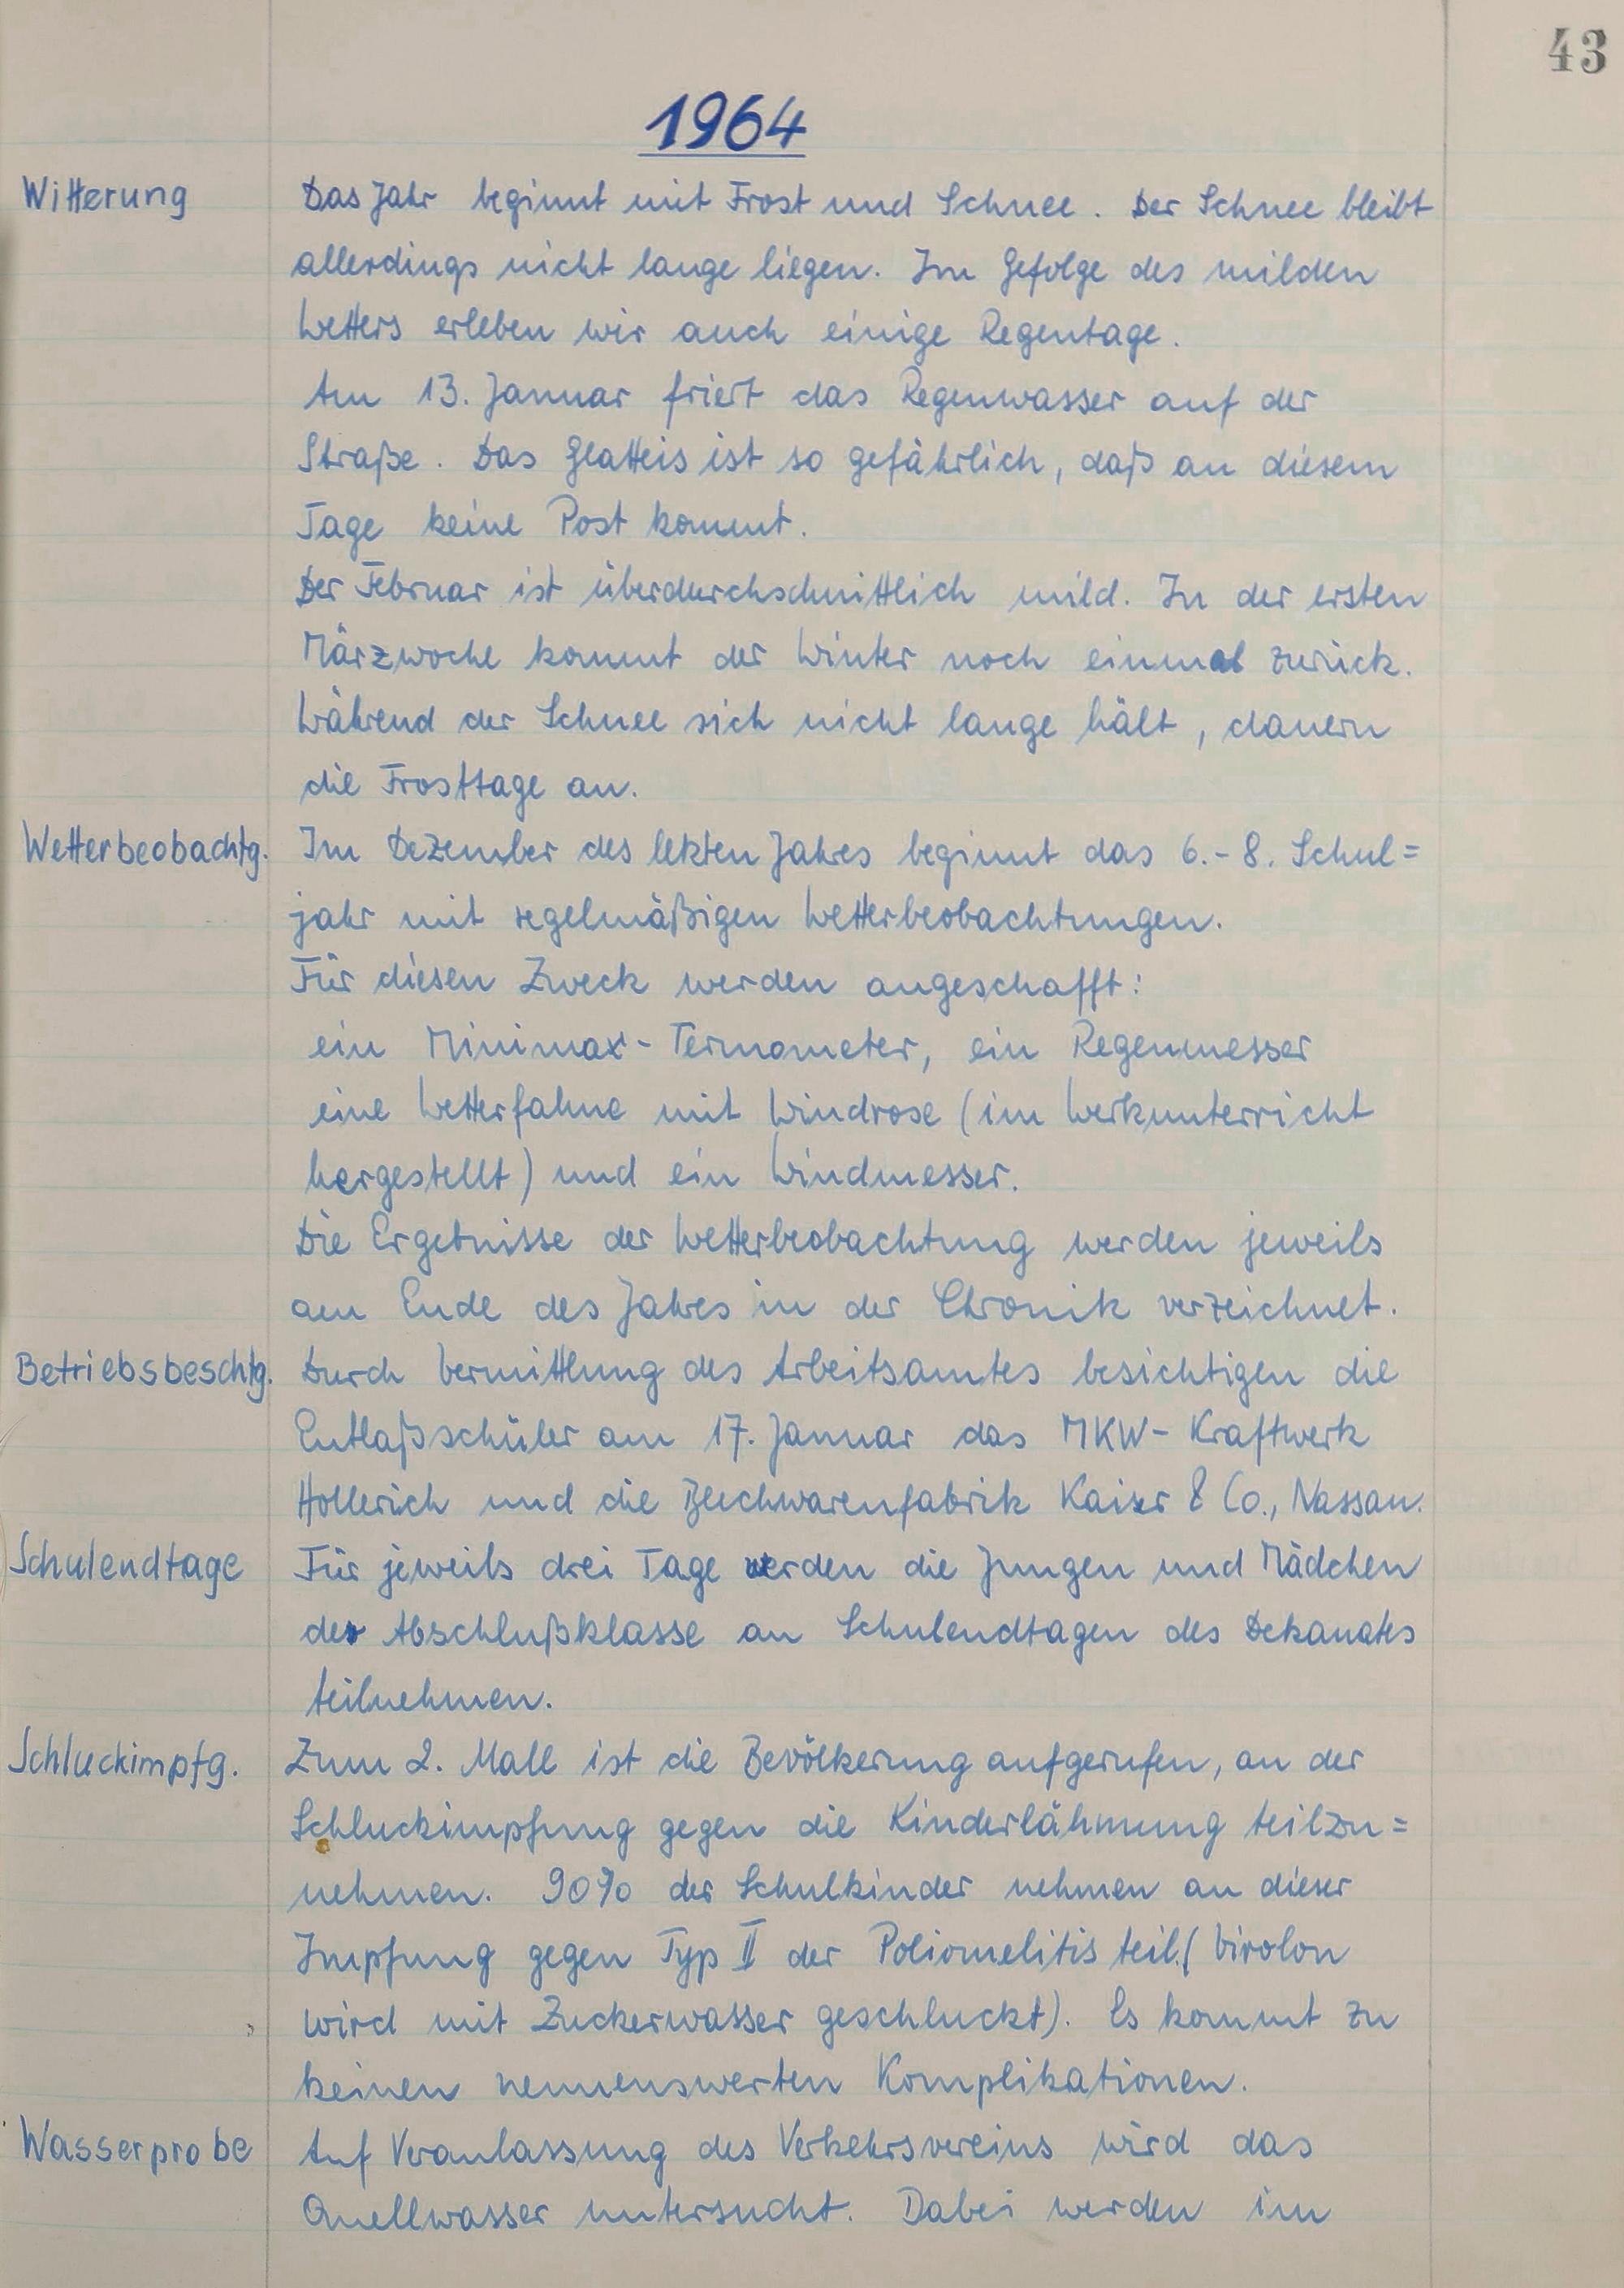 43
1964
Witterung Das Jahr beginnt mit Frost und Schnee. Der Schnee bleibt
allerdings nicht lange liegen. Im Gefolge des milden
Wetters erleben wir auch einige Regentage.
Am 13. Januar friert das Regenwasser auf der
Straße. Das Glatteis ist so gefährlich, daß an diesem
Tage keine Post kommt.
Der Februar ist überdurchschnittlich mild. In der ersten
Märzwoche kommt der Winter noch einmal zurück.
Während der Schnee sich nicht lange hält, dauern
die Frosttage an.
Wetterbeobachtg. Im Dezember des letzten Jahres beginnt das 6.-8. Schul=
jahr mit regelmäßigen Wetterbeobachtungen.
Für diesen Zweck werden angeschafft:
ein Minimax-Termometer, ein Regenmesser
eine Wetterfahne mit Windrose (im Werkunterricht
hergestellt) und ein Windmesser.
Die Ergebnisse der Wetterbeobachtung werden jeweils
am Ende des Jahres in der Chronik verzeichnet.
Betriebsbeschtg. Durch Vermittlung des Arbeitsamtes besichtigen die
Entlaßschüler am 17. Januar das MKW-Kraftwerk
Hollerich und die Blechwarenfabrik Kaiser & Co., Nassau.
Schulendtage Für jeweils drei Tage werden die Jungen und Mädchen
der Abschlußklasse an Schulendtagen des Dekanates
teilnehmen.
Schluckimpfg. Zum 2. Mall ist die Bevölkerung aufgerufen, an der
Schluckimpfung gegen die Kinderlähmung teilzu=
nehmen. 90% der Schulkinder nehmen an dieser
Impfung gegen Typ II der Poliomelitis teil.(Virolon
wird mit Zuckerwasser geschluckt). Es kommt zu
keinen nennenswerten Komplikationen.
Wasserprobe Auf Veranlassung des Verkehrsvereins wird das
Quellwasser untersucht. Dabei werden im